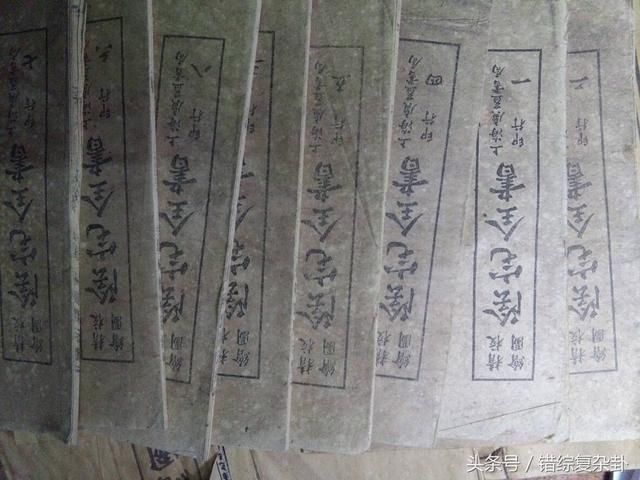 繪圖
精校
陰宅全書
上海廣益書局
印行
七
繪圖
精校
陰宅全書
上海廣益書局
印行
六
繪圖
陰宅全書
上海廣益書局
印行
八
繪圖
精校
陰宅全書
印行
三
繪圖
精校
陰宅全書
上海廣益書局
印行
五
繪圖
精校
陰宅全書
上海廣益書局
印行
四
繪圖
精校
陰宅全書
上海廣益書局
印行
一
繪圖
精校
陰宅全書
印行
二
头条号 / 错综复杂卦